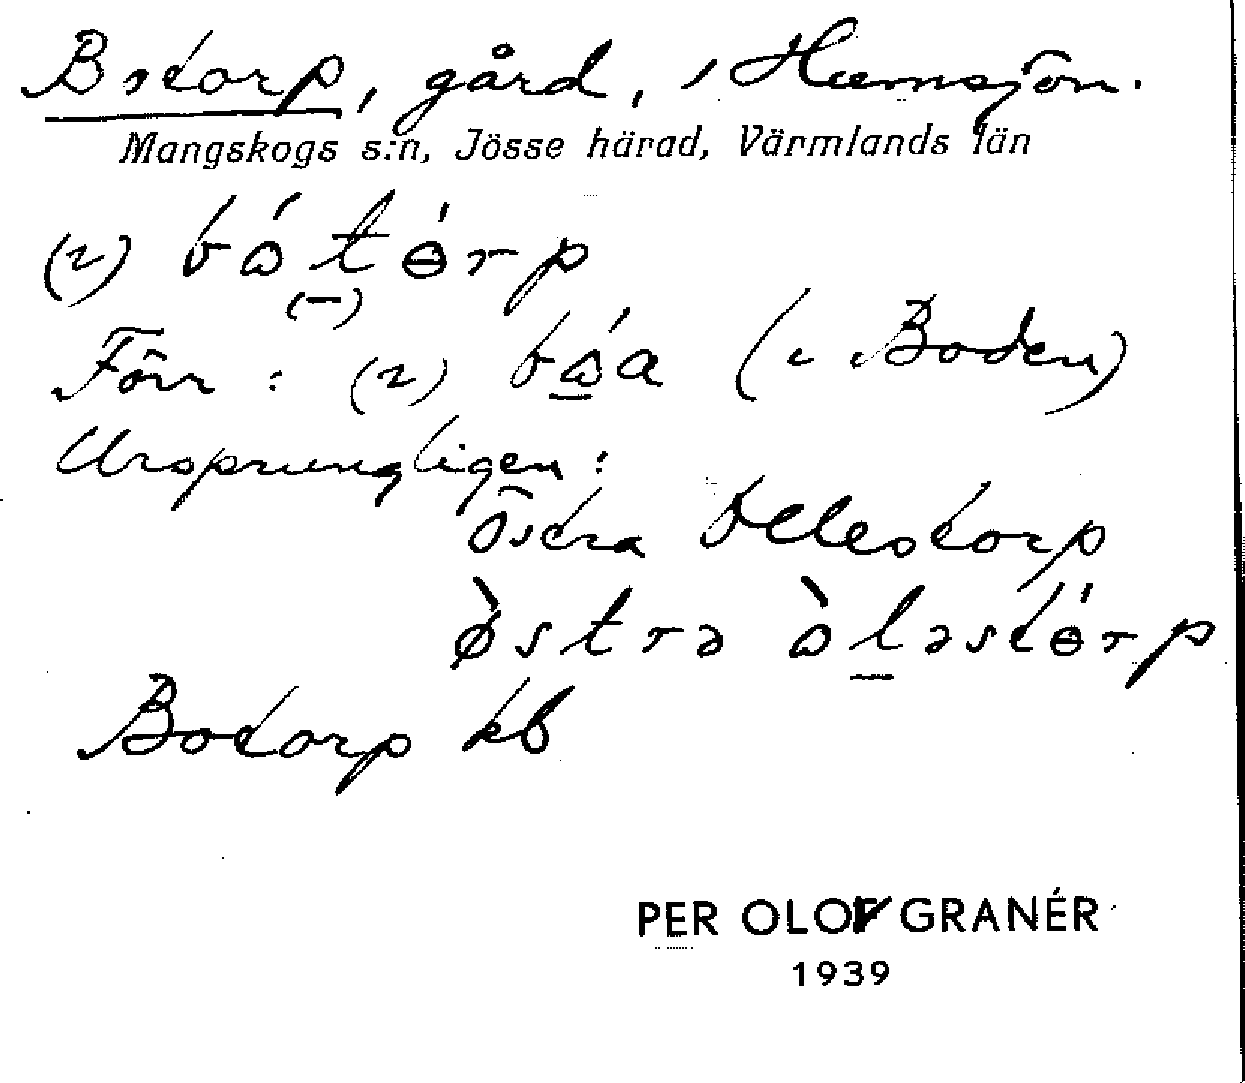 Botorp, gård, i Humsjön.
Mangskogs s:n, Jösse härad, Värmlands län
(2) bátérp
(-)
Förr : (2) báa (i Boden)
Ursprungligen :
Östra Ollestorp
østrə òləstérp
Botorp kb
PER OLOF GRANÉR
1939